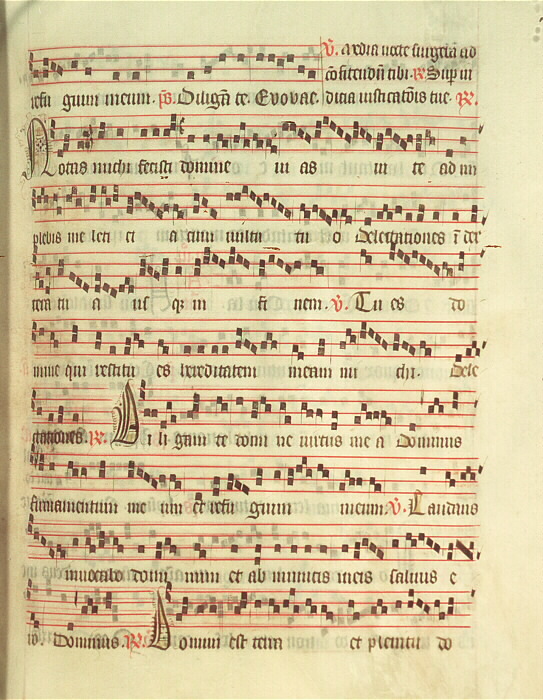 ℣. Media nocte surgebā ad
cōfitendū tibi. ℟. Sup iu
refu gium meum. ps. Diligā te. Evovae. dicia iusticatōis tue. ℟.
Notas michi fecisti domine c ui as ui te ad im
plebis me leti ci a cum vultu tu o Delectationes ī dex
tera tu a us q; in fi nem. ℣. Tu es do
mine qui restitu es hereditatem meam mi chi. Dele
ctationes. ℟. Di li gam te domi ne virtus me a Dominus
firmamentum me um et refu gium meum. ℣. Laudans
invocabo domi num et ab inimicis meis salvus e
ro. Dominus. ℟. Domini est terra et plenitu do